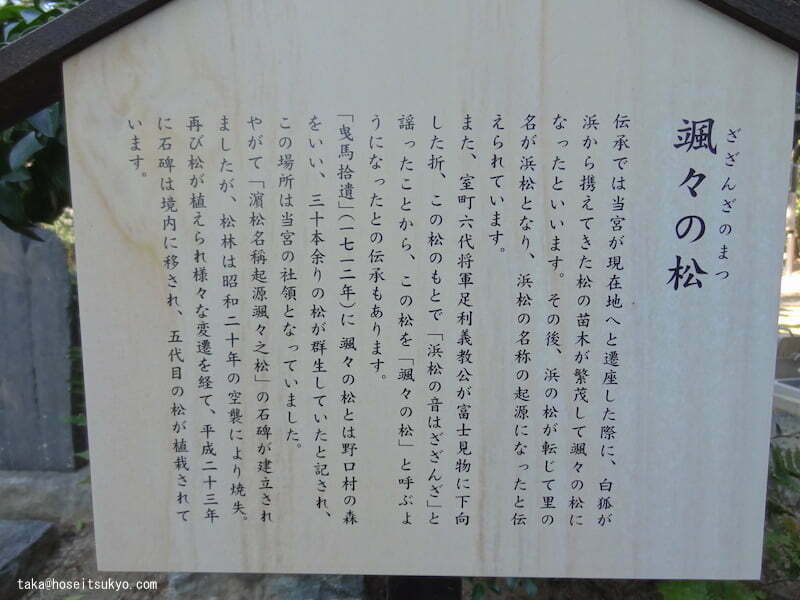 颯々の松
ざざんざのまつ
伝承では当宮が現在地へと遷座した際に、白狐が
浜から携えてきた松の苗木が繁茂して颯々の松に
なったといいます。その後、浜の松が転じて里の
名が浜松となり、浜松の名称の起源になったと伝
えられています。
また、室町六代将軍足利義教公が富士見物に下向
した折、この松のもとで「浜松の音はざざんざ」と
謡ったことから、この松を「颯々の松」と呼ぶよ
うになったとの伝承もあります。
「曳馬拾遺」(一七一二年)に颯々の松とは野口村の森
をいい、三十本余りの松が群生していたと記され、
この場所は当宮の社領となっていました。
やがて「濵松名稱起源颯々之松」の石碑が建立され
ましたが、松林は昭和二十年の空襲により焼失。
再び松が植えられ様々な変遷を経て、平成二十三年
に石碑は境内に移され、五代目の松が植栽されて
います。
taka@hoseitsukyo.com